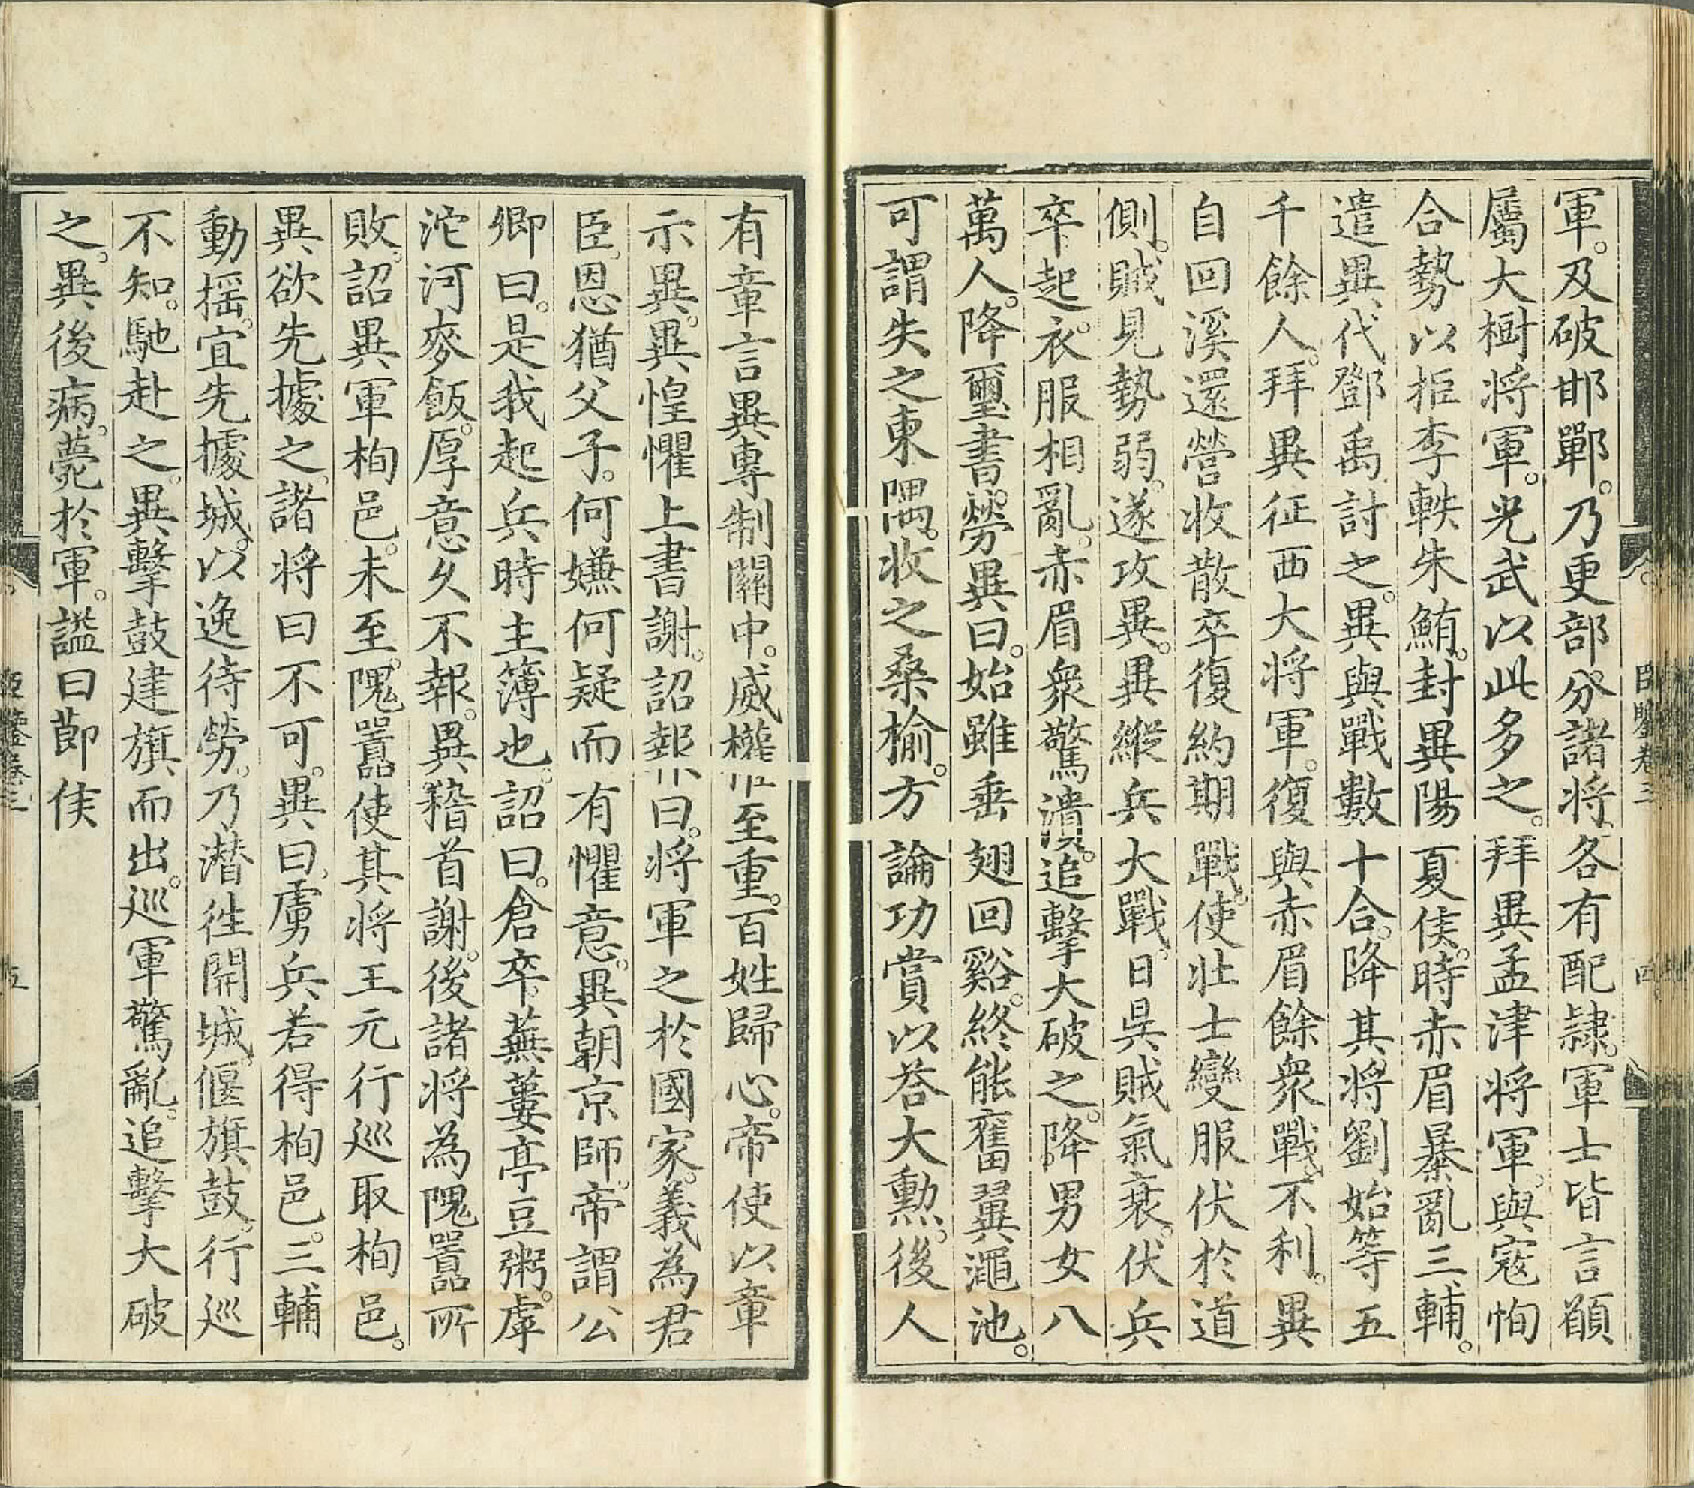 軍。及破邯鄲。乃更部分諸將。各有配隷。軍士皆言願
屬大樹将軍。光武以此多之。拜異孟津将軍。與寇恂
合勢以拒李軼朱鮪。封異陽夏侯。時赤眉暴亂三輔。
遣異代鄧禹討之。異與戰數十合。降其将劉始等五
千餘人。拜異征西大将軍。復與赤眉餘衆戰不利。異
自回溪還營收散卒復約期戰。使壯士變服伏於道
側。賊見勢弱。遂攻異。異縱兵大戰。日昃賊氣衰。伏兵
卒起。衣服相亂。赤眉衆驚潰。追擊大破之。降男女八
萬人。降璽書。勞異曰。始雖垂翅回谿。終能奮翼澠池。
可謂失之東隅。收之桑榆。方論功賞以荅大勲。後人
有章言異專制關中。威權至重。百姓歸心。帝使以章
示異。異惶懼上書謝。詔報曰。将軍之於國家。義為君
臣。恩猶父子。何嫌何疑而有懼意。異朝京師。帝謂公
卿曰。是我起兵時主簿也。詔曰。倉卒蕪蔞亭豆粥。虖
沱河麥飯。厚意久不報。異稽首謝。後諸将為隗囂所
敗。詔異軍栒邑。未至。隗囂使其将王元行巡取栒邑。
異欲先據之。諸将曰不可。異曰。虜兵若得栒邑。三輔
動揺。宜先據城。以逸待勞。乃潜徃閉城。偃旗鼓。行巡
不知。馳赴之。異擊鼓建旗而出。巡軍驚亂。追擊大破
之。異後病。薨於軍。諡曰節侯